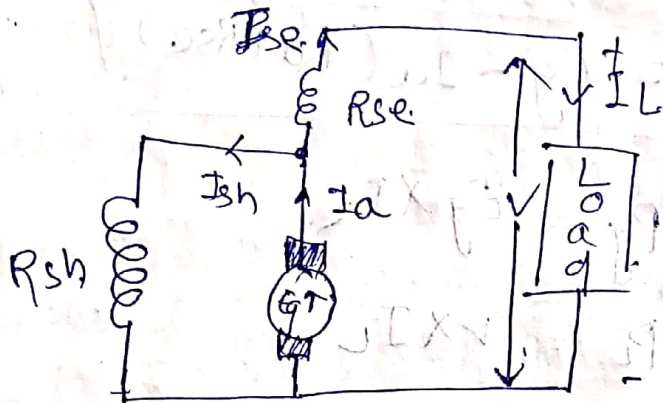 Ise
Rse
IL
Ish
Ia
V
Load
Rsh
G